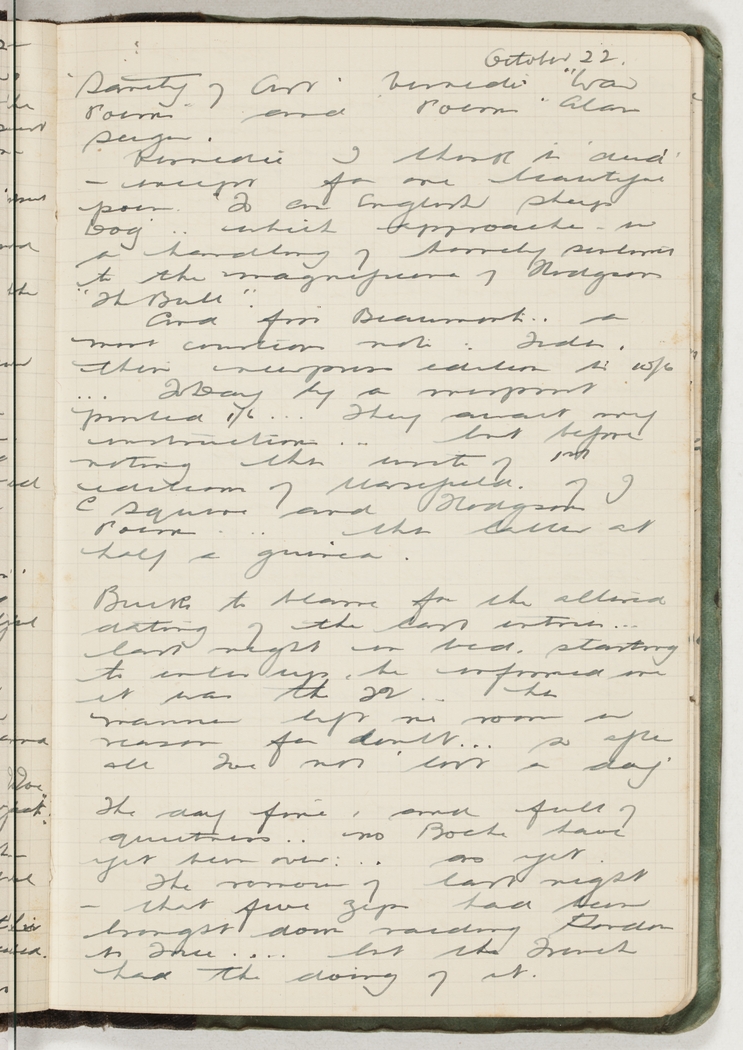 October 22.
"Sanity of Art" Vernede's "War
Poems" and Poems Alan
Seeger.
Vernedie I think is 'dead'
- except for one beautiful
poem "To an English Sheep
Dog".. which approaches in
a handling of homely
to the magnificence of Hodgson
"The Bull".
And from Beaumont.. a
most courteous note:
their edition is 10/6
... Today by a
printed 1/6... They await my
instruction... but before
noting this wrote of 1st
editions of Masefield. of J
C Squire and Hodgson
Poem .... the latter at
half a guinea.
Burks to blame for the altered
dating of the last entries...
last night in bed, starting
to enter up, he informed me
it was the 22... his
manner left me room or
reason for doubt... so after
all I've not 'lost a day'
The day fine, and full of
quietness.. no Boche have
yet been over:.. as yet.
The rumour of last night
- that five Zeps had been
brought down raiding London
is True.... but the French
had the doing of it.